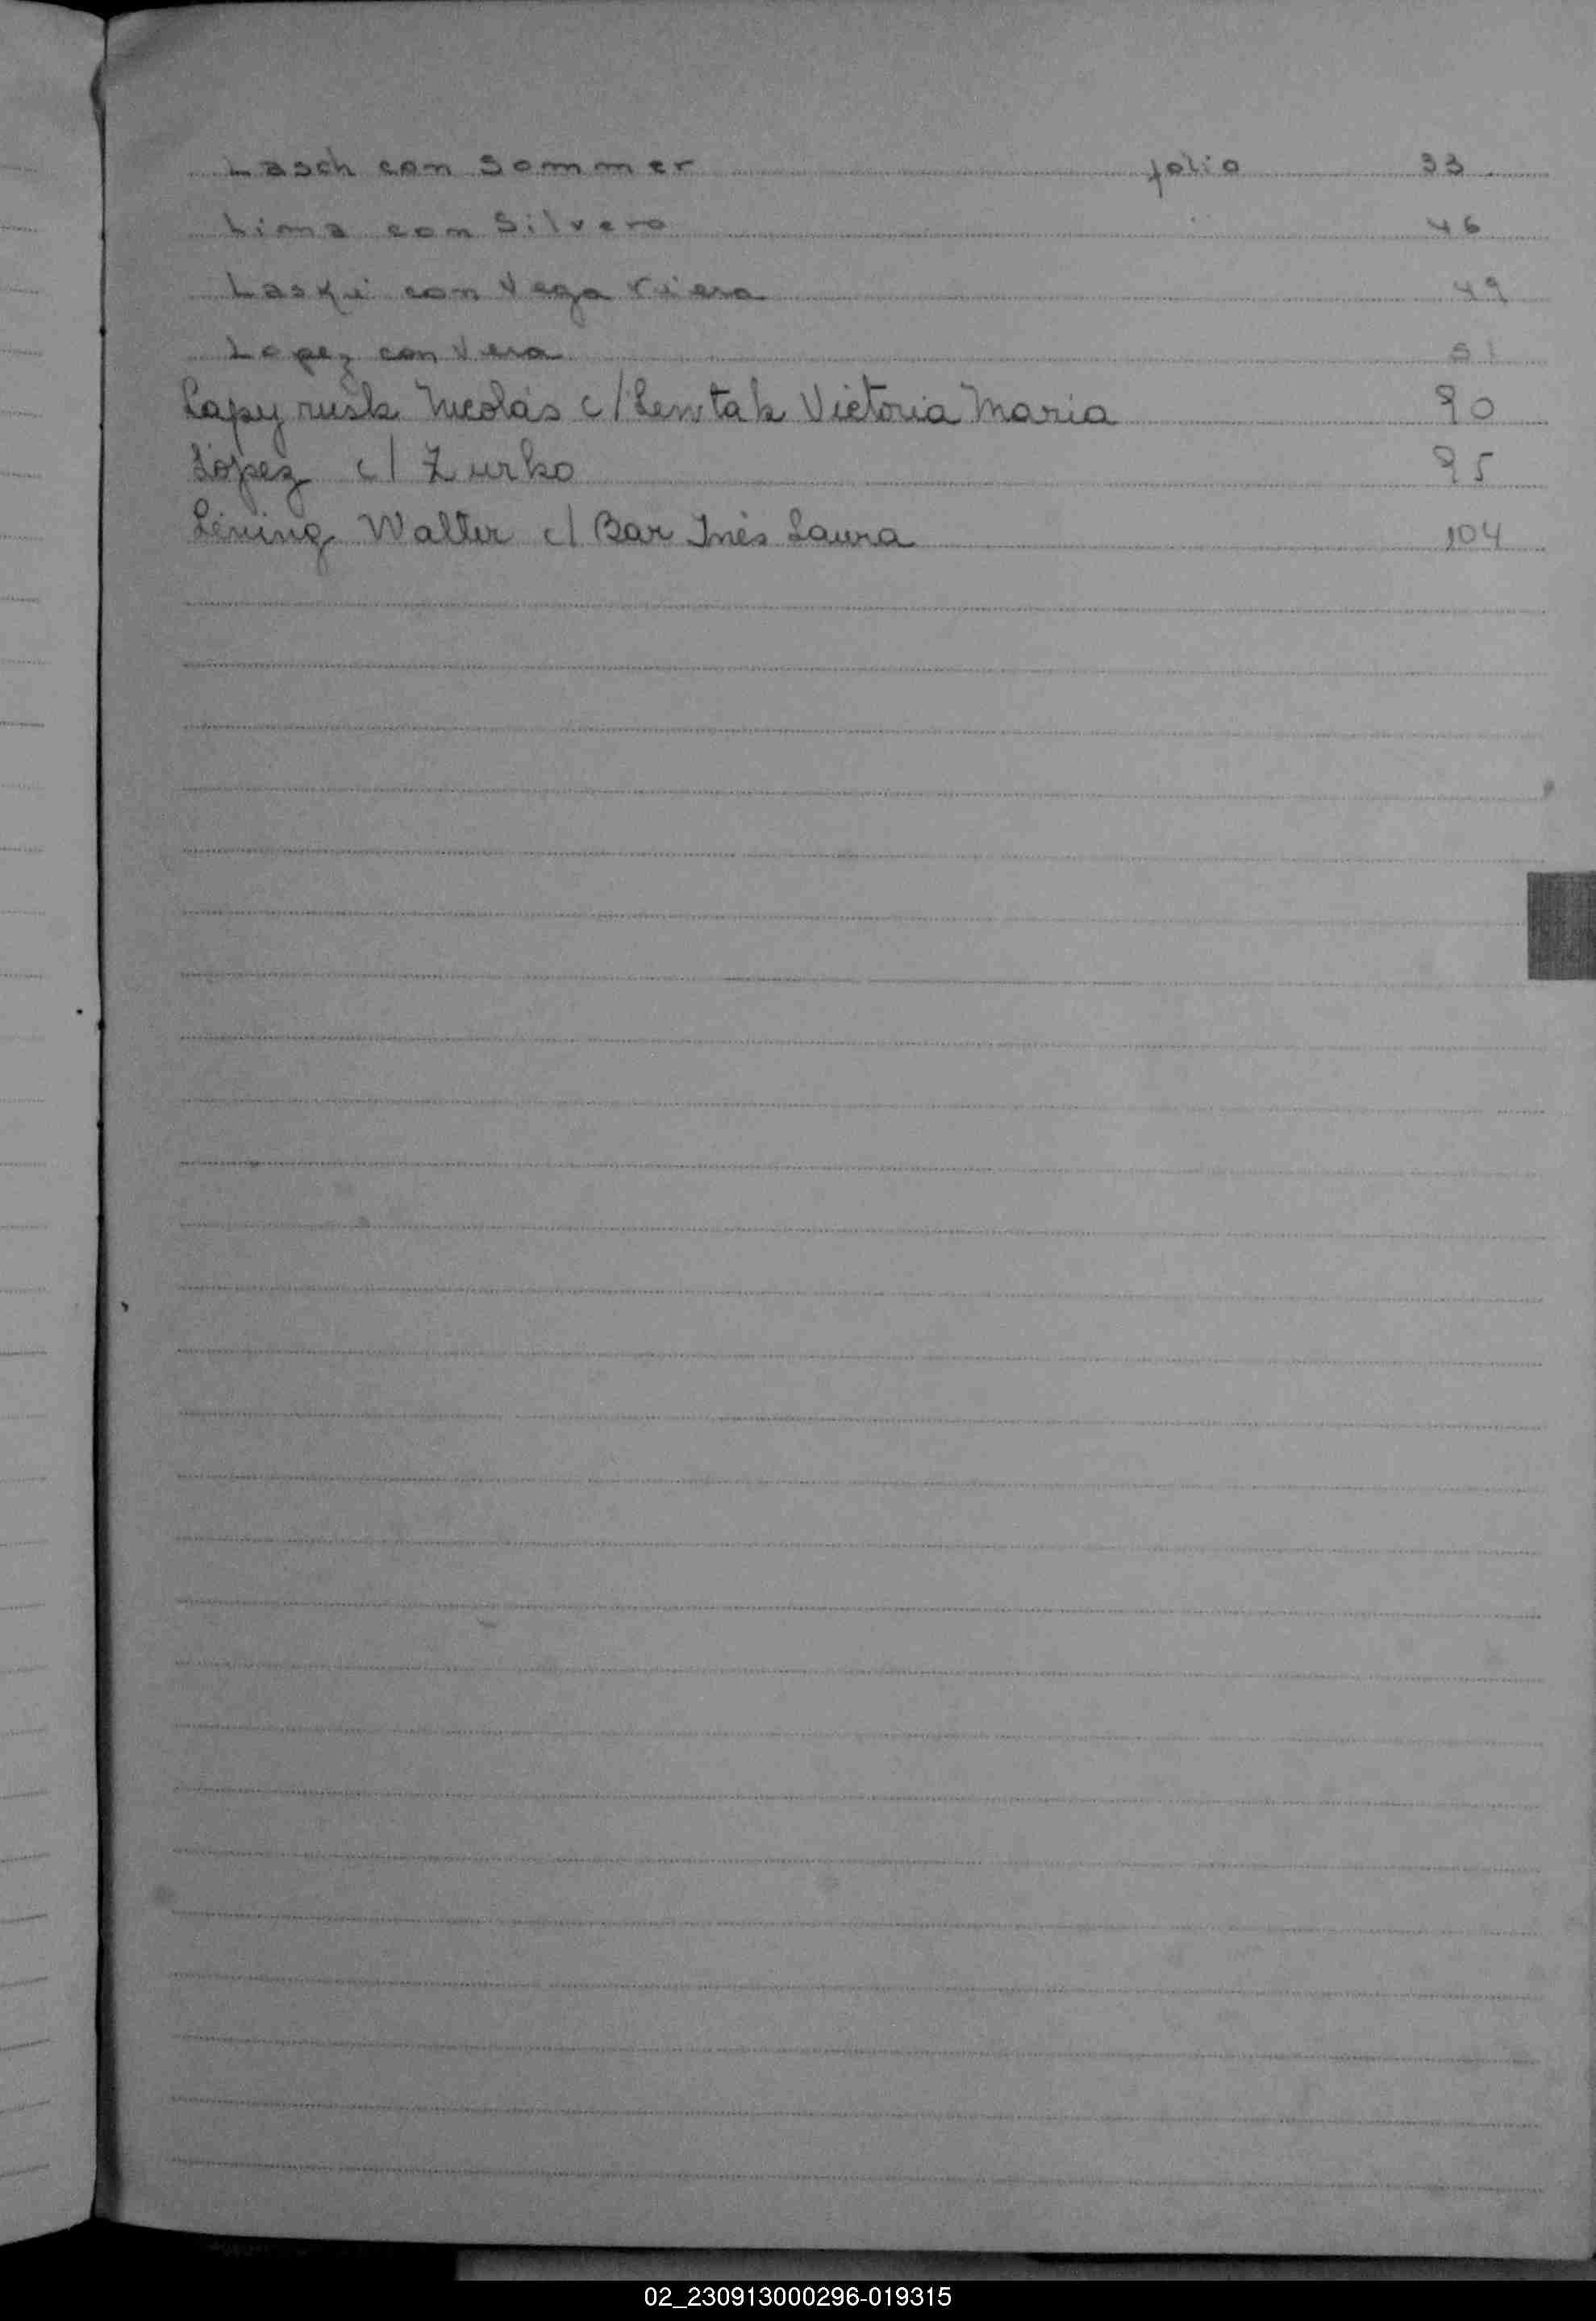 Lasch con Sommer folio 33
Lima con Silvero " 46
Laski con Vega Viera 49
Lopez con Vera 51
Lapyrusk Nicolás c/ Lewtak Victoria Maria 90
López c/ Zurko 95
Lining Walter c/ Bar Inés Laura 104
02_230913000296-019315